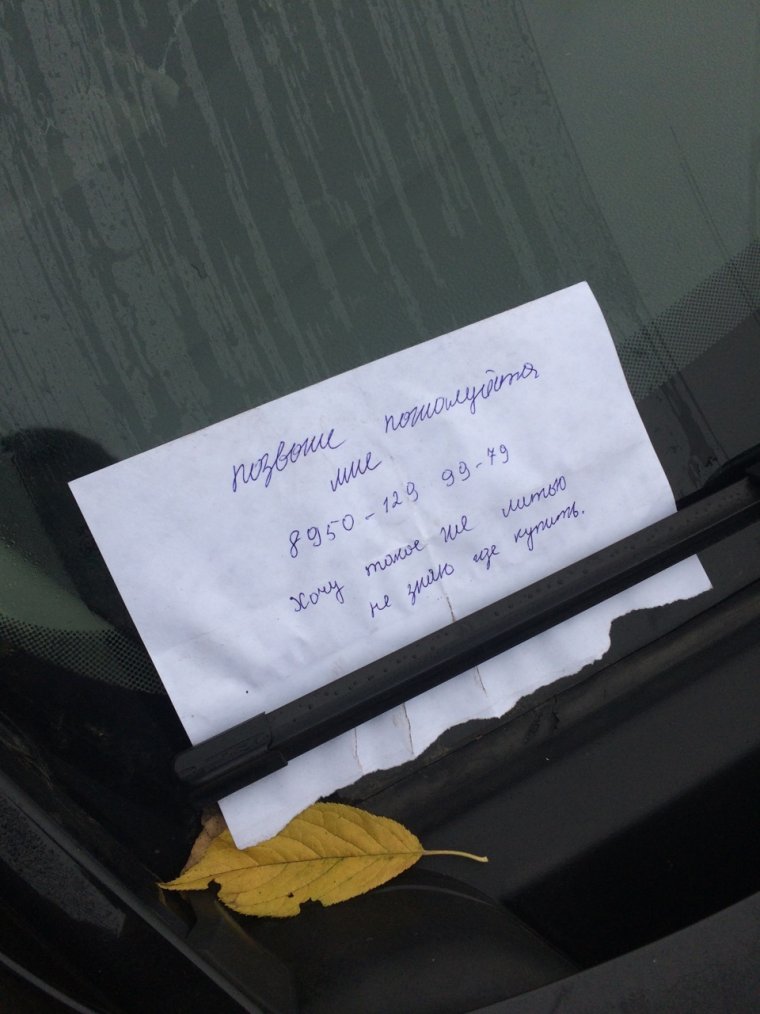 позвоние пожалуйста
мне
8950-129 99-79
Хочу такое же литью
не знаю где купить.